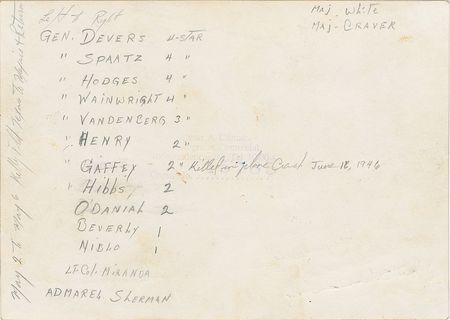 Left to Right
Maj White
Maj- CRAVER
GEN. DEVERS 4-STAR
" SPAATZ 4 "
" HODGES 4 "
" WAINWRIGHT 4 "
" VANDENBERG 3 "
" HENRY 2 "
" GAFFEY 2 " Killed in plane Crash June 18, 1946
" HIBBS 2
O'DANIAL 2
BEVERLY 1
NIBLO 1
LT. Col. MIRANDA
ADMAREL SHERMAN
May 2 to May 6 Kelly Field Texas to & Return